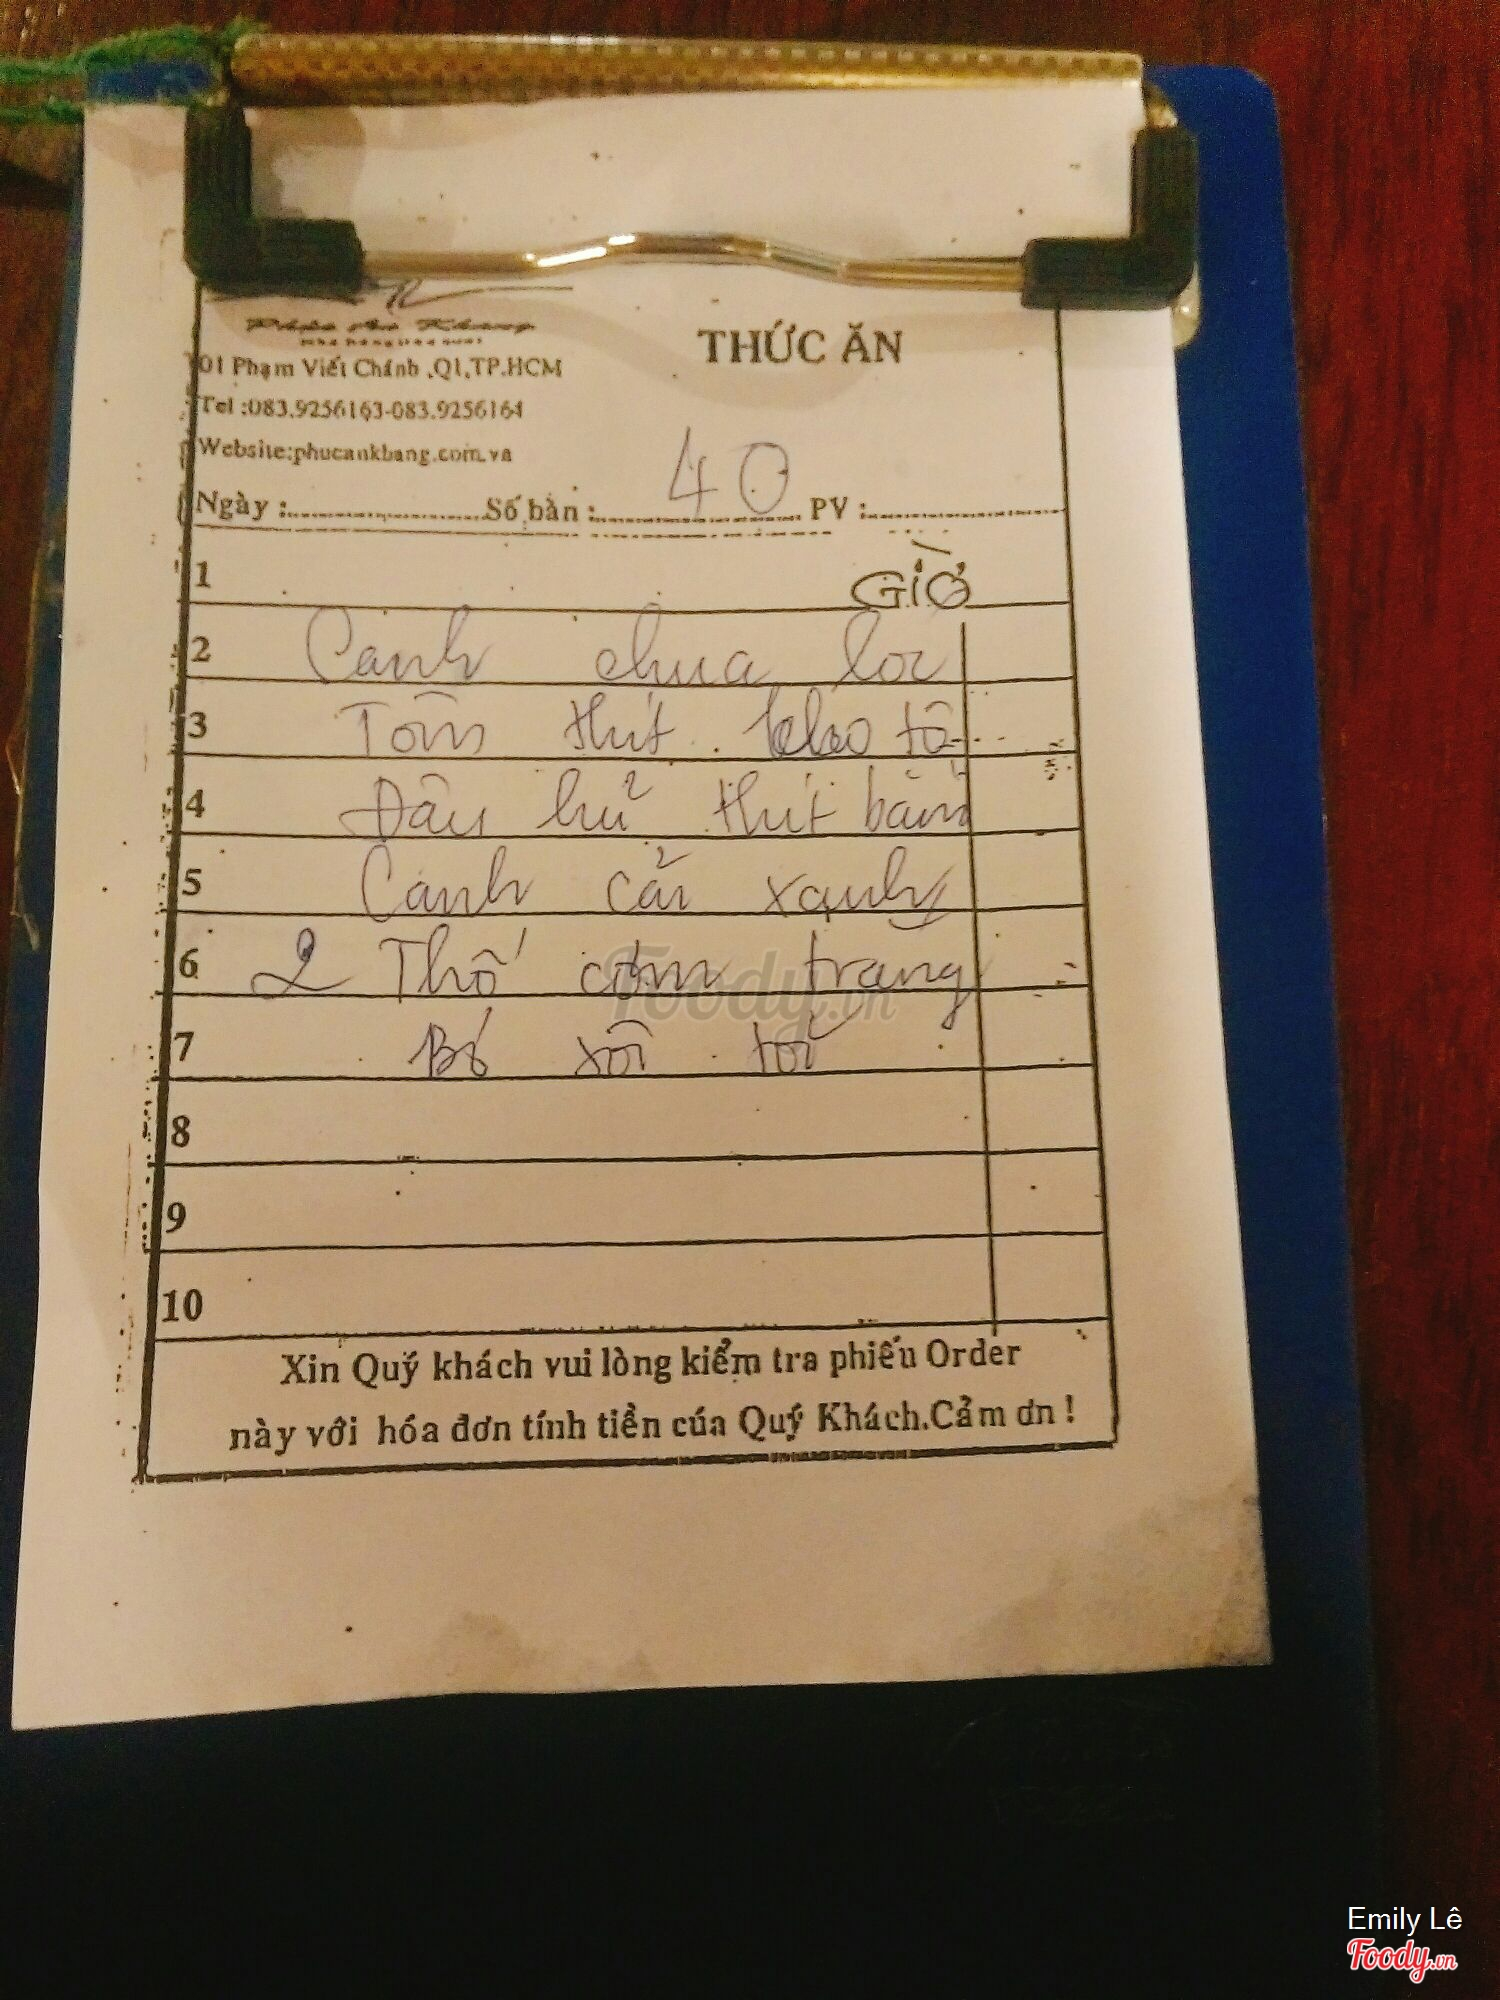 Phúc An Khang
THỨC ĂN
01 Phạm Viết Chánh ,Q1,TP.HCM
Tel :083.9256163-083.9256164
Website:phucankhang.com.vn
Ngày :
Số bàn : 40
PV :
1
GIỜ
2 Canh chua lóc
3 Tôm thịt kho tộ
4 Đậu hủ thịt bằm
5 Canh cải xanh
6 2 Thố cơm trắng
7 Bó xôi tỏi
8
9
10
Xin Quý khách vui lòng kiểm tra phiếu Order
này với hóa đơn tính tiền của Quý Khách.Cảm ơn !
Foody.vn
Emily Lê
Foody.vn